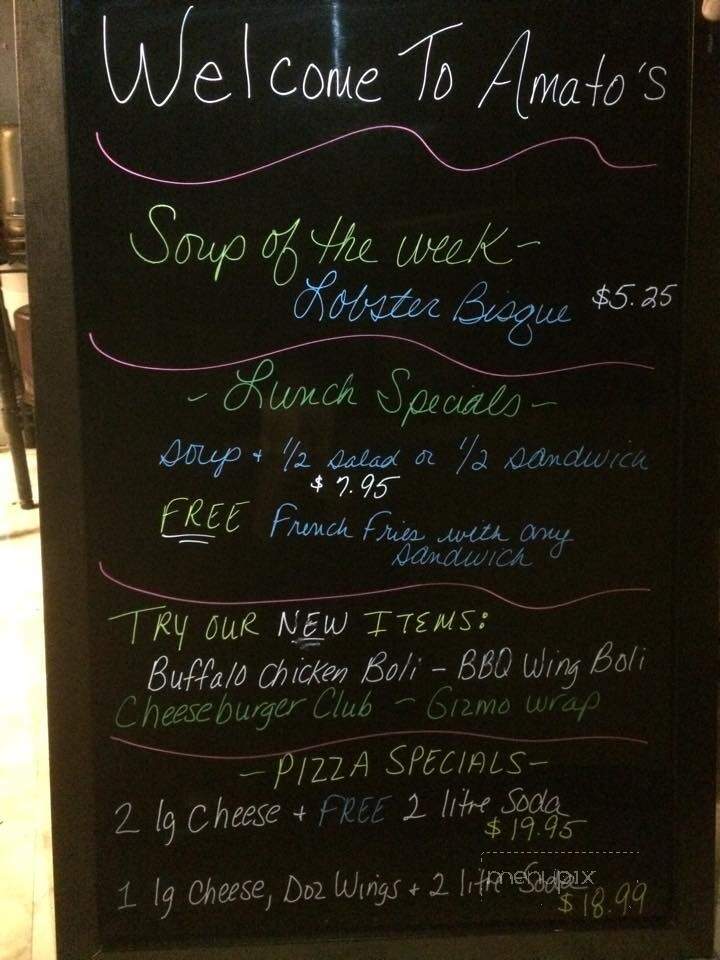 Welcome To Amato's
Soup of the week-
Lobster Bisque $5.25
- Lunch Specials -
Soup + 1/2 salad or 1/2 sandwich
$7.95
FREE French Fries with any
sandwich
TRY OUR NEW ITEMS:
Buffalo Chicken Boli - BBQ Wing Boli
Cheeseburger Club - Gizmo wrap
- PIZZA SPECIALS -
2 lg Cheese + FREE 2 litre Soda
$19.95
menupix
1 lg Cheese, Doz Wings + 2 litre Soda
$18.99